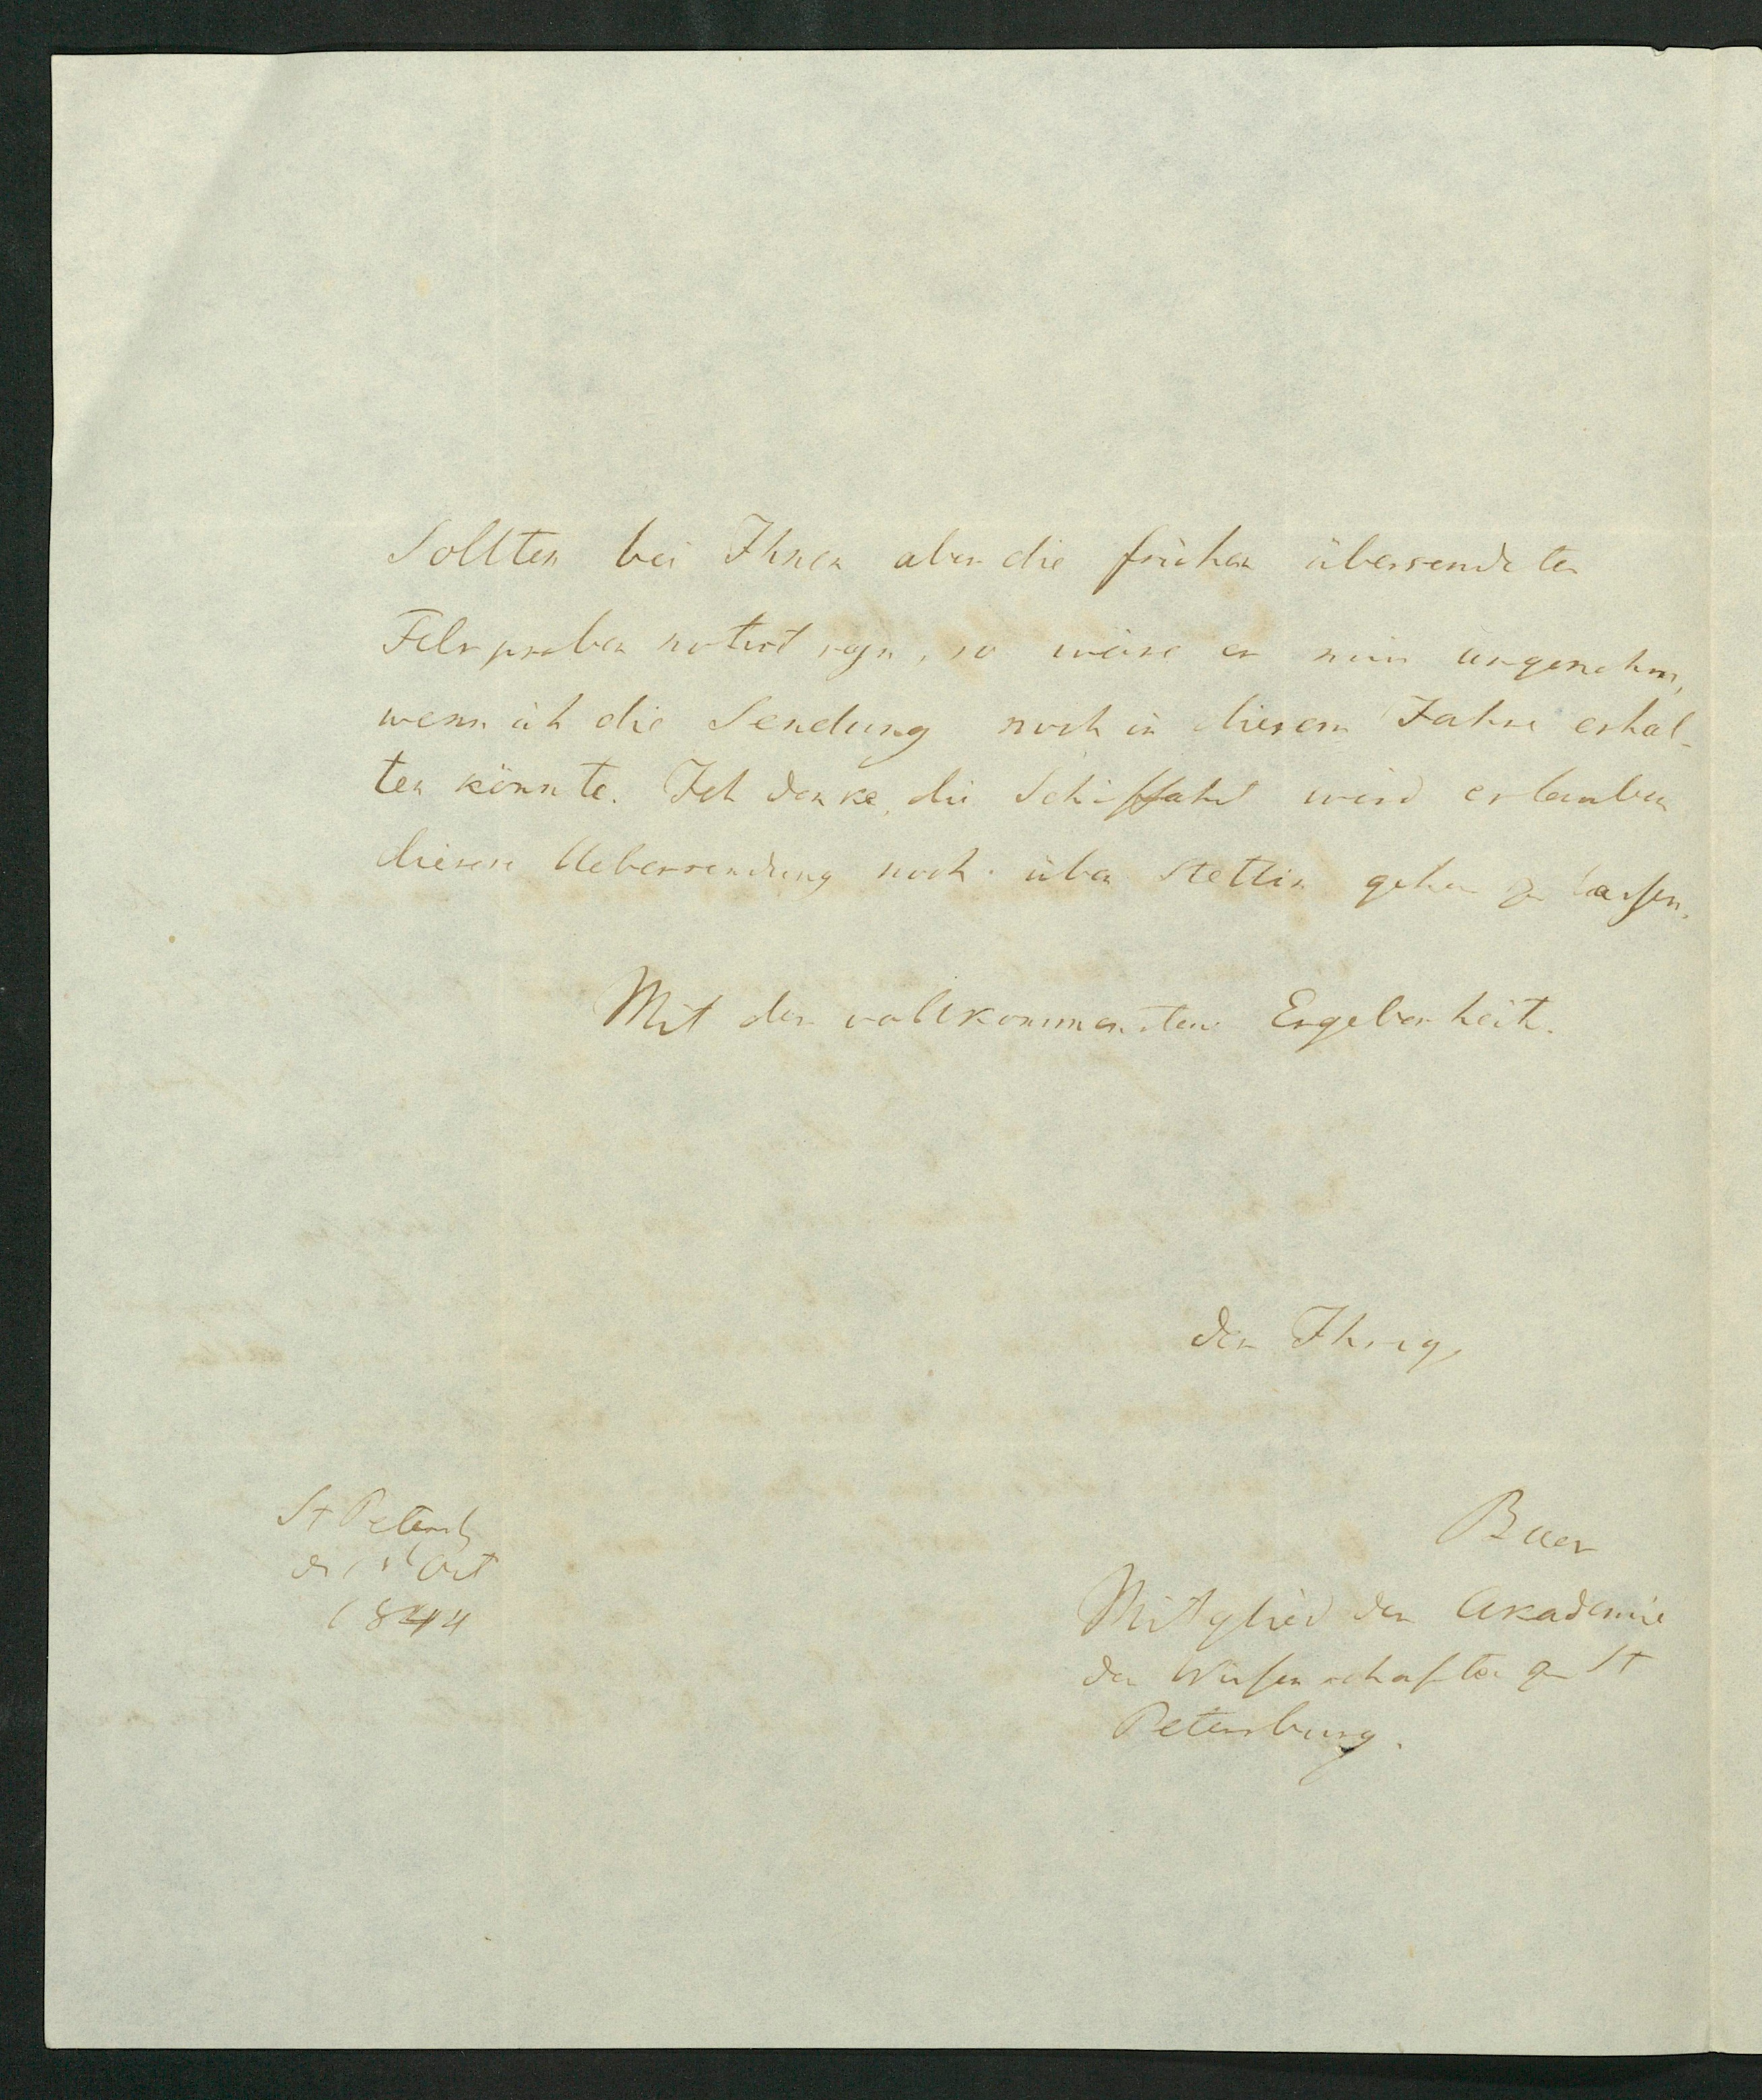 Sollten bei Ihnen aber die früher übersendeten
Felsproben notirt seyn, so wäre es mir angenehm,
wenn ich die Sendung noch in diesem Jahre erhal-
ten könnte. Ich denke, die Schiffahrt wird erlauben
diese Uebersendung noch über Stettin gehen zu lassen.
Mit der vollkommensten Ergebenheit.
der Ihrige
Baer
Mitglied der Akademie
der Wissenschaften zu St
Petersburg.
St Petersb
Oct
1844